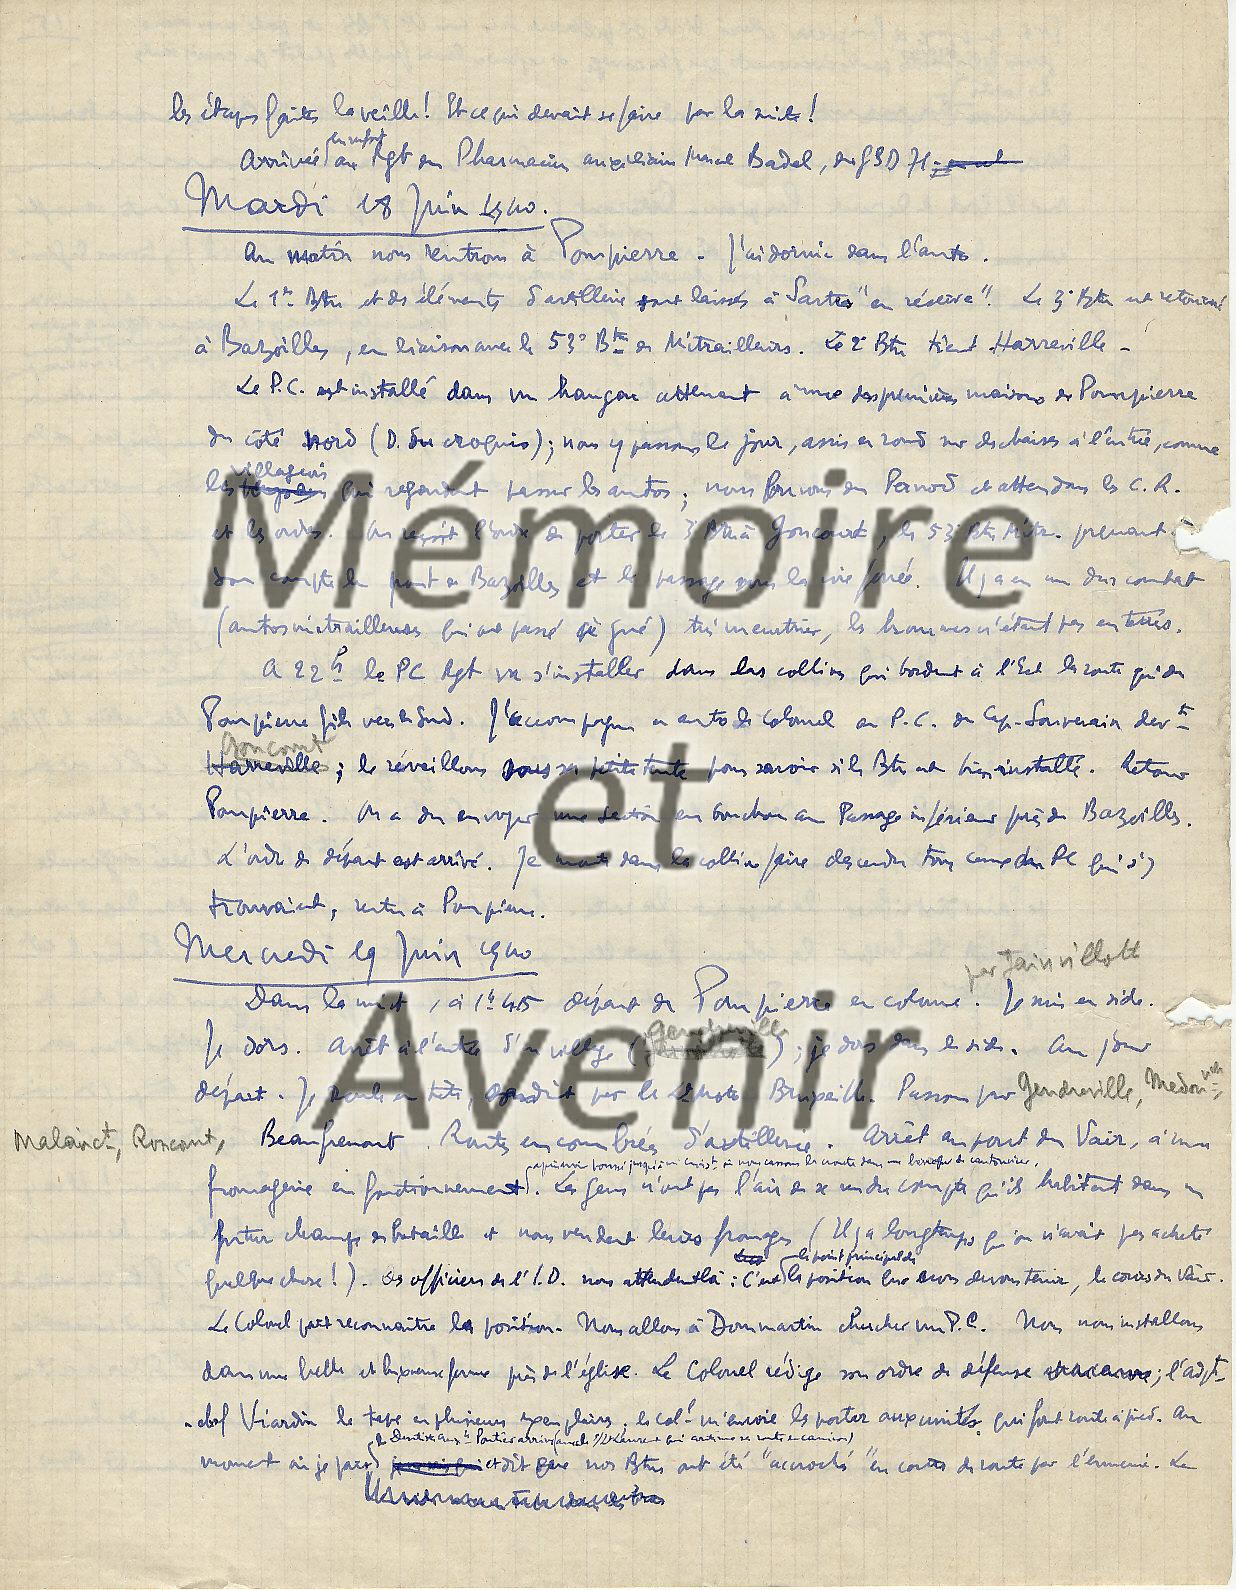 les étapes faites la veille ! Et ce qui devait se faire par la suite !
en renfort
Arrivée au Rgt du Pharmacien auxiliaire Badel, du GSD 71
Mardi 18 Juin 1940.
Au matin nous rentrons à Pompierre. J'ai dormi dans l'auto.
Le 1er Btn et des éléments d'artillerie sont laissés à Sartes "en réserve". Le 3e Btn est retourné
à Bazoilles, en liaison avec le 53e Btn de Mitrailleurs. Le 2e Btn tient Harreville -
Le P.C. est installé dans un hangar attenant à une des premières maisons de Pompierre
du côté Nord (D. du croquis) ; nous y passons le jour, assis en rond sur des chaises à l'entrée, comme
villageois
les qui regardent passer les autos ; nous buvons du Pernod et attendons les C.R.
et les ordres. On reçoit l'ordre de porter le 3e Btn à Goncourt, le 53e Btn Mitr. prenant à
son compte le pont de Bazoilles et le passage sous la voie ferrée. Il y a eu un dur combat
(automitrailleuses qui ont passé à gué) très meurtrier, les hommes n'étant pas enterrés.
A 22h le PC Rgt va s'installer dans les collines qui bordent à l'Est la route qui de
Pompierre file vers le Sud. J'accompagne en auto le Colonel au P.C. du Cap. Souverain devt
Goncourt
Harreville ; le réveillons sous sa petite tente pour savoir si le Btn est bien installé. Retour
Pompierre. On a du envoyer une section en bouchon au Passage inférieur près de Bazoilles.
L'ordre de départ est arrivé. Je monte dans les collines faire descendre tous ceux du PC qui s'y
trouvaient, rentre à Pompierre.
Mercredi 19 Juin 1940
par Jainvillotte
Dans la nuit, à 1h 45 départ de Pompierre en colonne. Je suis en side.
Gendreville
Je dors. Arrêt à l'entrée d'un village ( ) ; je dors dans le side. Au jour
départ. Je roule en tête, conduit par le Passons par Gendreville, Medonville,
Malainct, Roncourt, Beaufremont. Routes encombrées d'artillerie. Arrêt au pont du Vair, à une
fromagerie en fonctionnement. Les gens n'ont pas l'air de se rendre compte qu'ils habitent dans un
futur champ de bataille et nous vendent leurs fromages (Il y a longtemps qu'on n'avait pas acheté
le point principal de
quelque chose !). Des officiers de l'I.D. nous attendent là : C'est la position que nous devons tenir, le cours du Vair.
Le Colonel part reconnaître la position. Nous allons à Dommartin chercher un P.C. Nous nous installons
dans une belle et luxueuse ferme près de l'église. Le Colonel rédige son ordre de défense ; l'adjt
-chef Viardin le tape en plusieurs exemplaires ; le col. m'envoie les porter aux unités qui font route à pied. Au
moment où je pars et dit que nos Btns ont été "accrochés" en cours de route par l'ennemi. Le
Mémoire
et
Avenir